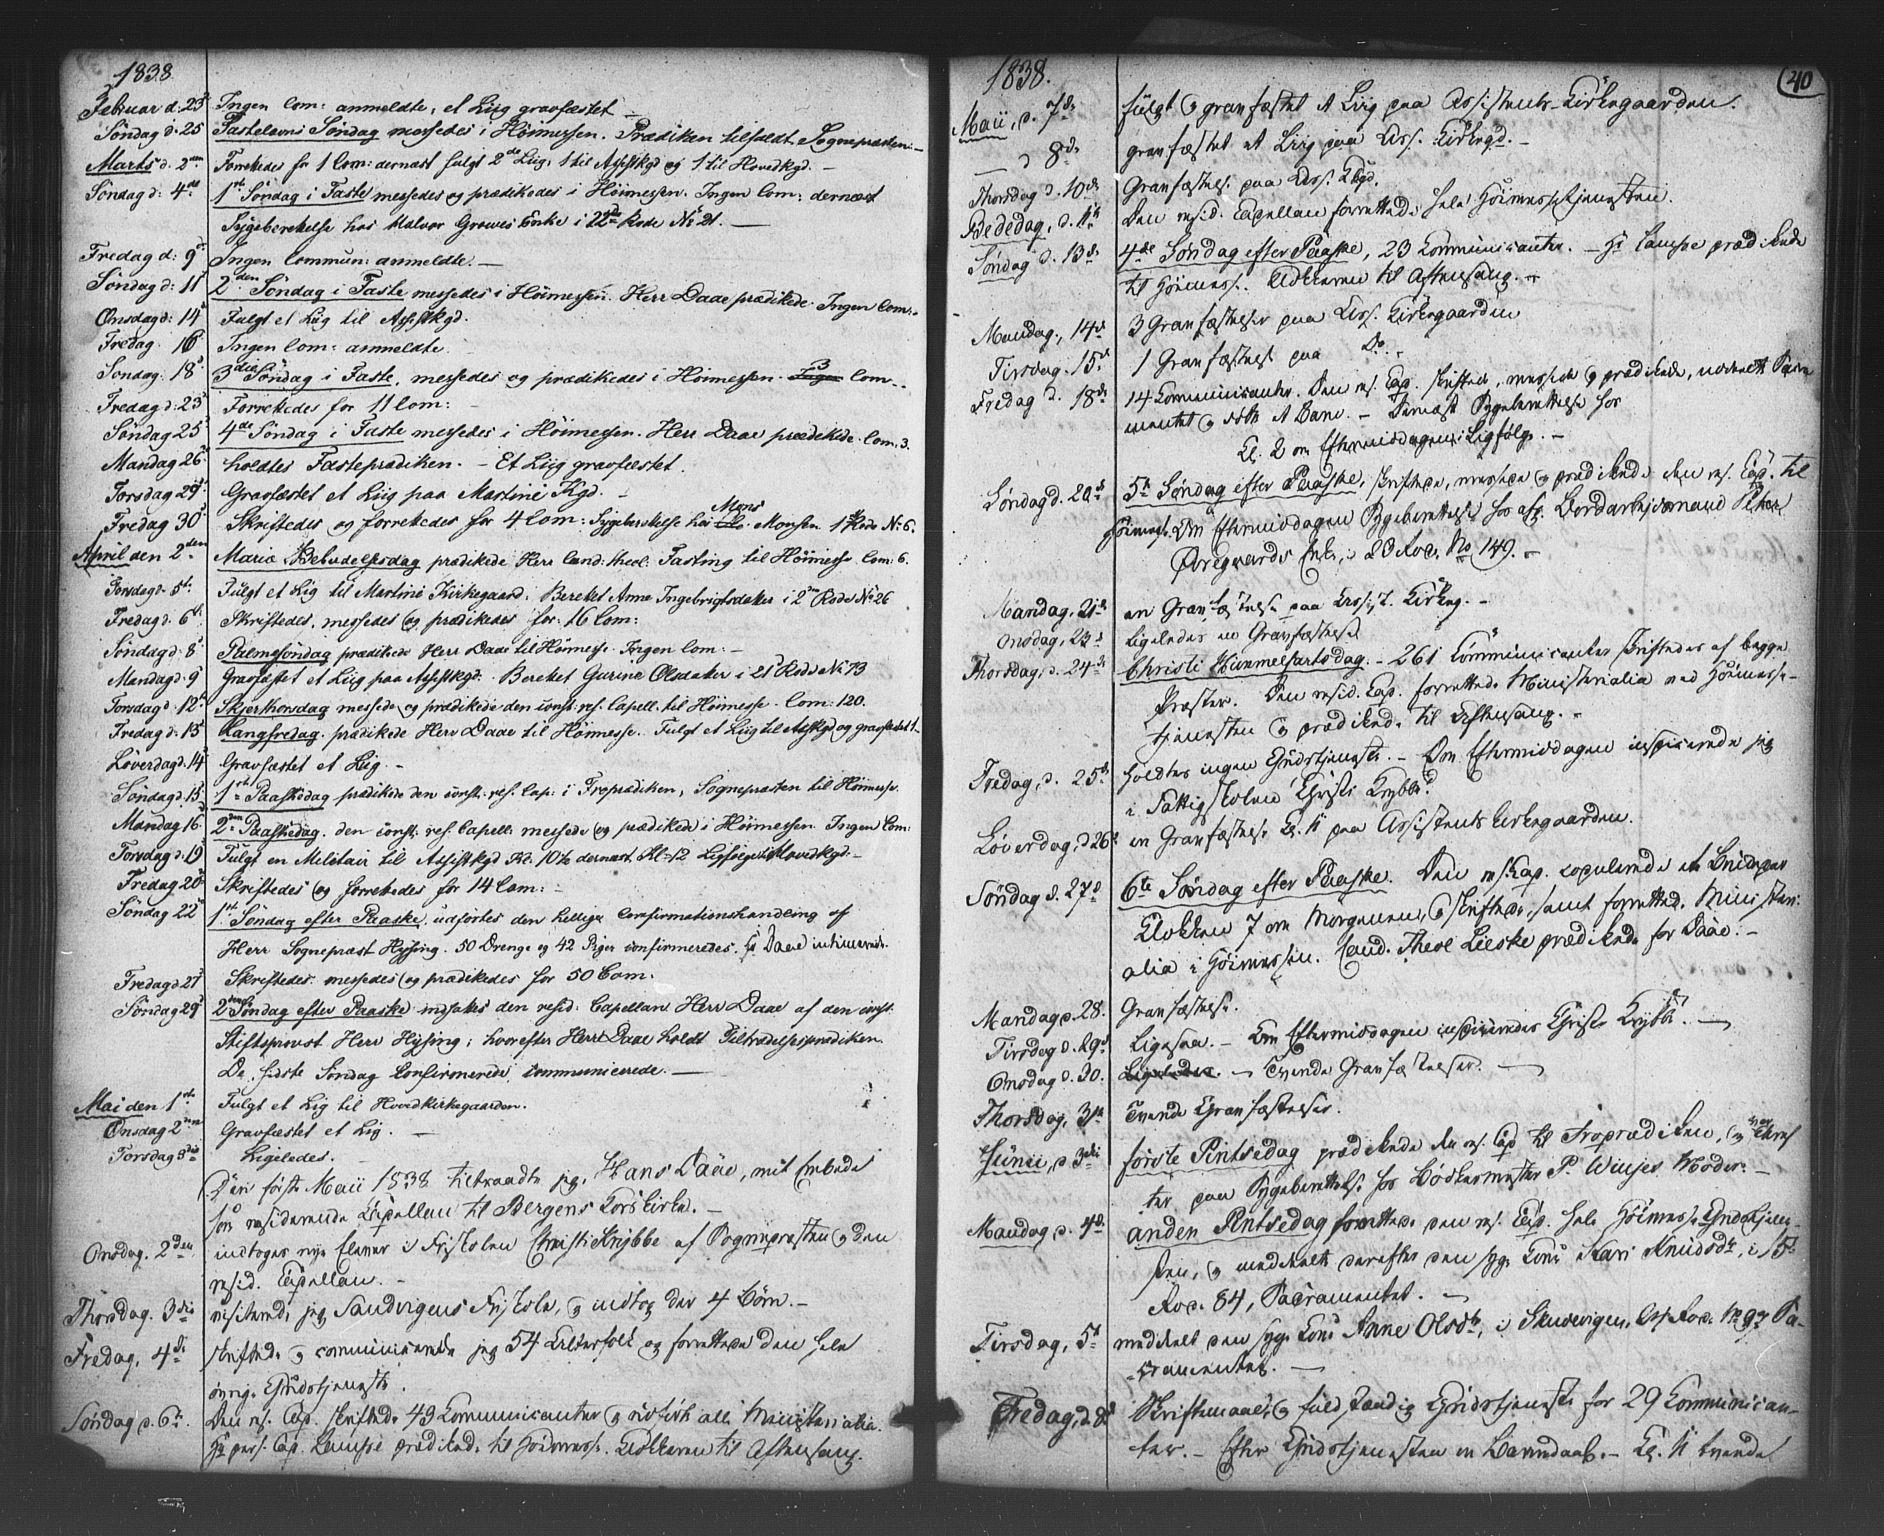 1838
Februar d: 23 Ingen Com: anmeldte, et Liig gravfæstet —
Søndag d: 25 Fastelavns Søndag messedes i Høimessen. Prædiken tilfaldt Sognepræsten: —
Marts d: 2den Forrettedes for 1 Com: dernæst fulgt 2de Liig, 1 til Assistkgd og 1 til Hovedkgd. —
Søndag d: 4de 1ste Søndag i Faste messedes og prædikedes i Høimessen. Ingen Com: dernæst
Sygeberettelse hos Halvor Growes Enke i 22de Rode No 21. —
Fredag d: 9 Ingen Commun: anmeldte. —
Søndag d: 11 2den Søndag i Faste messedes i Høimessen. Herr Daae prædikede. Ingen Com: —
Onsdag d: 14 Fulgt et Liig til Assistkgd.
Fredag. 16 Ingen Com: anmeldte.
Søndag. 18 3die Søndag i Faste, messedes og prædikedes i Høimessen. Ingen 3 Com. —
Fredag d: 23 Forrettedes for 11 Com: —
Søndag 25 4de Søndag i Faste messedes i Høimessen. Herr Daae prædikede. Com: 3.
Mandag 26 holdtes Fasteprædiken. — Et Liig gravfæstet.
Torsdag 29 Gravfæstet et Liig paa Martini Kgd. —
Fredag 30 Skriftedes og forrettedes for 4 Com: Sygeberettelse hos Mons Monsen. 1ste Rode No 6.
April den 2den Mariæ Bebudelsesdag prædikede Herr Cand: theol: Fasting til Høimesse Com: 6.
Torsdag d. 5te Fulgt et Liig til Martini Kirkegaard. Berettet Anna Ingebrigtsdatter i 2den Rode No 26
Fredag d: 6te Skriftedes, messedes og prædikedes for 16 Com:
Søndag d: 8 Palmesøndag prædikede Herr Daae til Høimesse. Ingen Com: —
Mandag d: 9 Gravfæstet et Liig paa Assistkgd. Berettet Gurine Olsdatter i 21 Rode No 73
Torsdag d: 12te Skjerthorsdag messede og prædikede den const: res. Capell. til Høimesse. Com: 120.
Fredag d: 13 Langfredag prædikede Herr Daae til Høimesse. Fulgt et Liig til Assistkgd og gravfæstet 1.
Løverdag d. 14 Gravfæstet et Liig. —
Søndag d. 15 1ste Paaskedag prædikede den const: res. Cap: i Froprædiken, Sognepræsten til Høimesse.
Mandag 16 2den Paaskedag. den const: res Capell: messede og prædikede i Høimessen. Ingen Com:
Torsdag d: 19 Fulgt en Militair til Assistkgd Kl. 10½ dernæst Kl. 12 Ligfølge til Hovedkgd. —
Fredag 20 Skriftedes og forrettedes for 14 Com: —
Søndag 22 1ste Søndag efter Paaske. udførtes den hellige Confirmationshandling af
Herr Sognepræst Hysing. 50 Drenge og 42 Piger confirmeredes. Hr Daae intimerede.
Fredag d 27 Skriftedes. messedes og prædikedes for 50 Com.
Søndag 29 2den Søndag efter Paaske indsattes den resid: Capellan Herr Daae af den const:
Stiftsprovst Herr Hysing; hvorefter Herr Daae holdt Tiltrædelsesprædiken.
De, sidste Søndag Confirmerede, communicerede. —
Mai den 1ste Fulgt et Lig til Hovedkirkegaarden.
Onsdag 2den Gravfæstet et Lig. —
Torsdag 3die Ligeledes. —
Den første Maii 1838 tiltraadte jeg, Hans Daae, mit Embede
som residerende Capellan til Bergens Korskirke. —
Onsdag. 2den indtoges nye Elever i Friskolen Christi Krybbe af Sognepræsten og den
resid. Capellan. —
Thorsdag. 3die visiterede jeg Sandvigens Friskole, og indtog der 4 Børn. —
Fredag, 4de skriftede og communicerede jeg 54 Alterfolk og forrettede den hele
øvrige Gudstjeneste.
Søndag d. 6te Den res. Cap. skriftede 43 Communicanter og udførte alle Ministerialia.
Hr pers. Cap. Lampe prædikede til Høimesse. Klokkeren til Aftensang.
1838. 40
Maii, d. 7de fulgt og gravfæstet et Liig paa Assistents-Kirkegaarden.
d 8de gravfæstet et Liig paa Ass. Kirkegd. —
Thorsdag d. 10de Gravfæstelse paa Ass. Kkgd.
Bededag, d. 11te Den resid. Capellan forrettede hele Høimessetjenesten.
Søndag d. 13de 4de Søndag efter Paaske, 23 Communicanter. — Hr Lampe prædikede
til Høimesse. Klokkeren til Aftensang. —
Mandag, 14de 3 Gravfæstelser paa Ass. Kirkegaarden
Tirsdag. 15de 1 Gravfæstelse paa Do. —
Fredag d. 18de 14 Communicanter. Den res. Cap. skriftede, messede og prædikede, uddeelte Sacra-
mentet og døbte et Barn. — Dernæst Sygeberettelse hos
Kl. 2 om Eftermiddagen Ligfølge. —
Søndag d. 20de 5te Søndag efter Paaske, skriftede, messede og prædikede den res. Cap. til
Høimesse. Om Eftermiddagen Sygeberettelse hos afg. Bordarbeidsmand Peter
Øregaards Enke, i 20 Rode, No 149. —
Mandag, 21de en Gravfæstelse paa Assist. Kirkeg. —
Onsdag, 23de ligeledes en Gravfæstelse
Thorsdag, d. 24de Christi Himmelfartsdag. — 261 Communicanter skriftedes af begge
Præster. Den resid. Cap. forrettede Ministerialia ved Høimesse-
tjenesten og prædikede til Aftensang. —
Fredag, d. 25de holdtes ingen Gudstjeneste. — Om Eftermiddagen inspicerede jeg
i Fattigskolen Christi Krybbe.
Løverdag, d 26de en Gravfæstelse Kl. 11 paa Assistents Kirkegaarden.
Søndag d. 27de 6te Søndag efter Paaske. Den res. Cap. copulerede et Brudepar
Klokken 7 om Morgenen, og skriftede, samt forrettede Ministeri-
alia i Høimessen. Cand. Theol Lieske prædikede for Daae. —
Mandag d. 28. Gravfæstelse.
Tirsdag d. 29de Ligesaa. — Om Eftermiddagen inspiceredes Christi Krybbe. —
Onsdag d. 30. Ligeledes. — Tvende Gravfæstelser. —
Thorsdag, 31te Tvende Gravfæstelser.
Junii, d 3die første Pintsedag prædikede den res. Cap til Froprædiken, og var efter
paa Sygeberettelse hos Bødkermester P. Winjes Moder. —
Mandag d. 4de anden Pintsedag forrettede den res. Cap. hele Høimesse Gudstjene-
sten, og meddeelte derefter den syge Kone Kari Knudsdtr, i 15de
Rode. 84, Sacramentet. —
Tirsdag, 5te meddeelt den syge Kone Anne Olsdtr, i Skudevigen, Rode. No 97 Sa-
cramentet. —
Fredag, d. 8de Skriftemaal og fuldstændig Gudstjeneste for 29 Communican-
ter. — Efter Gudstjenesten en Barnedaab. — Kl. 11 tvende